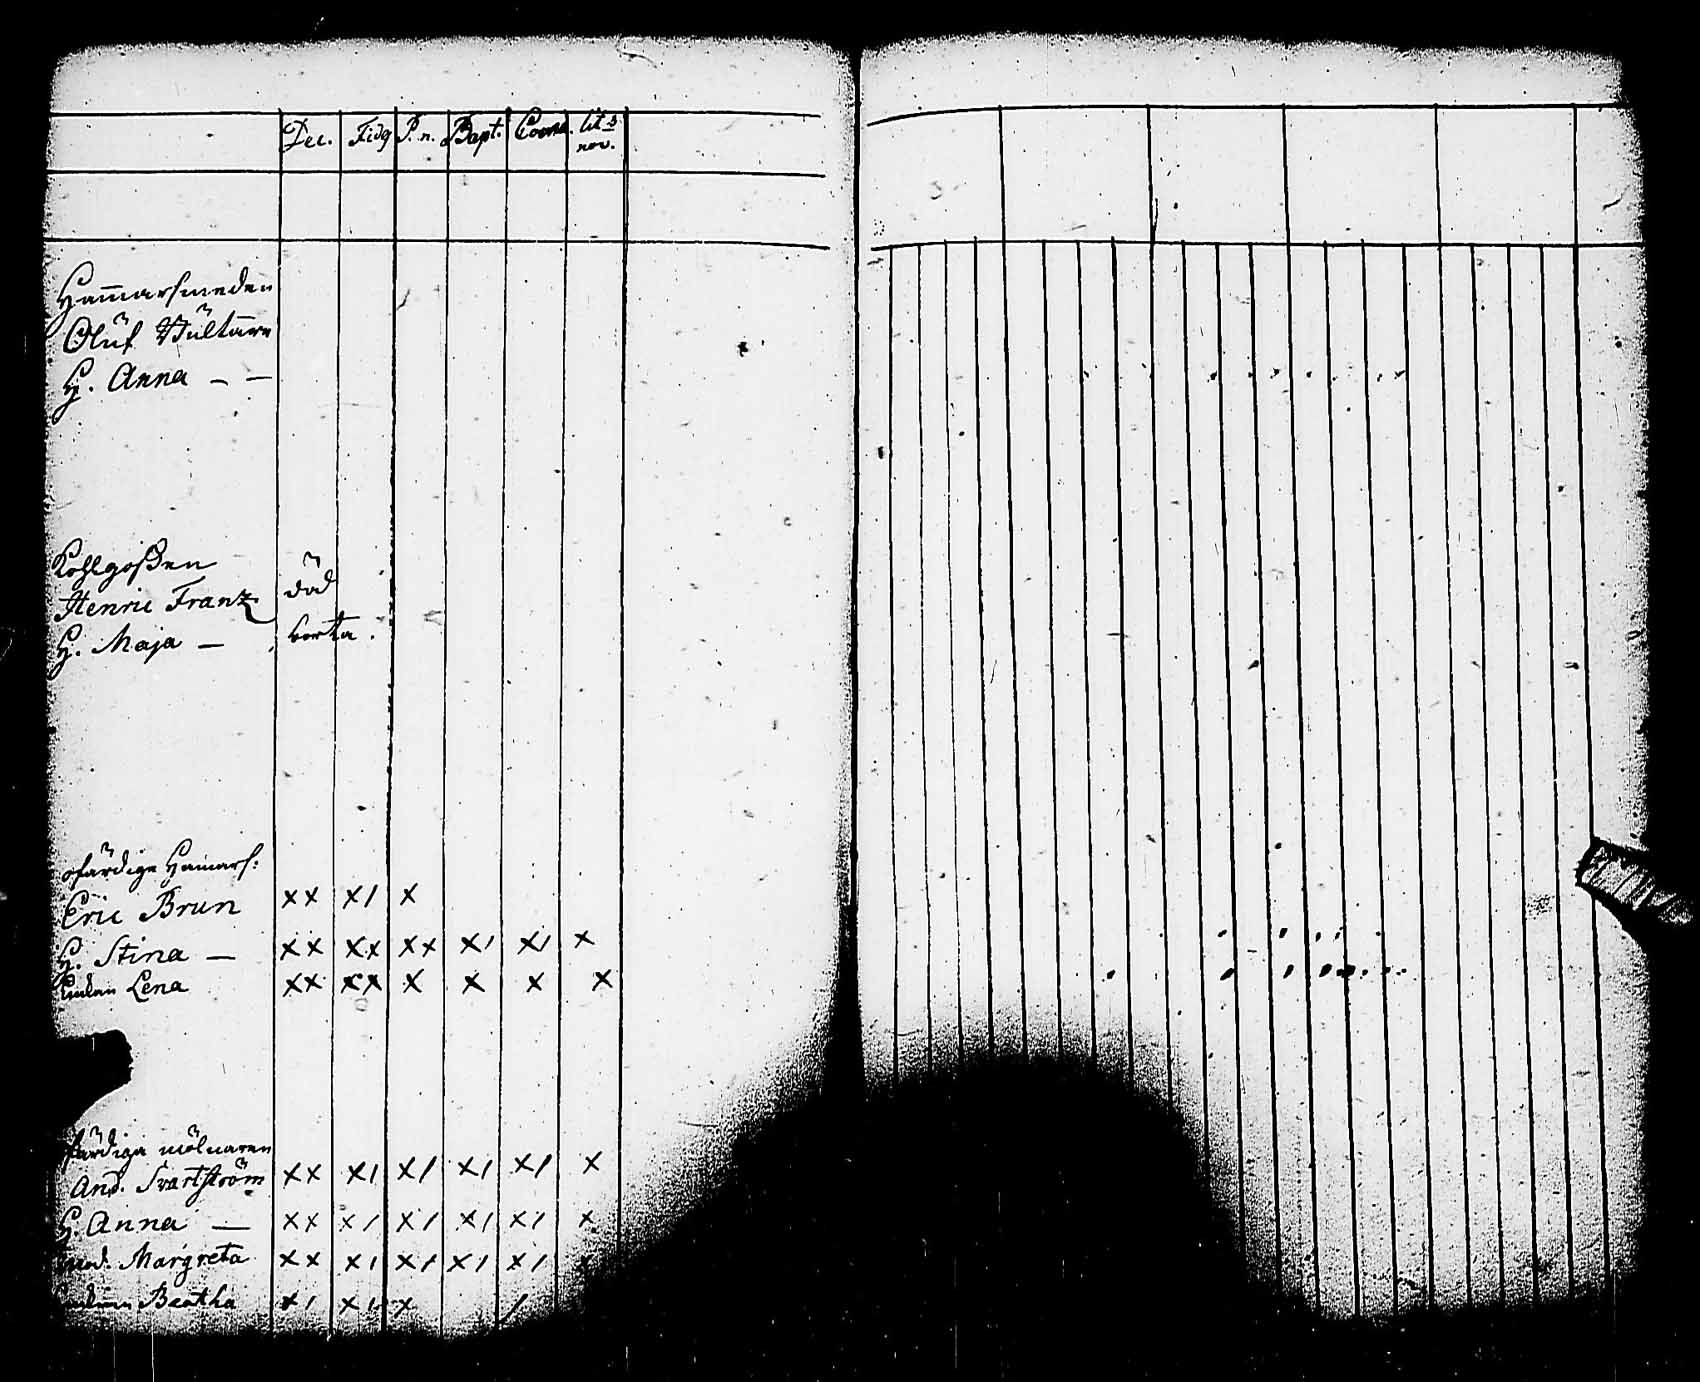 Dec. Fidꝫ P. n. Bapt. Coena. lit s
nov.
Ham̄arsmeden
Oluf Vultare
H. Anna – –
Kohlgoßen
Henric Franz död
H. Maja – borta.
ofärdige Ham̄ars:
Eric Brun xx x/ x
H. Stina – xx xx xx x/ x/ x
Enkan Lena xx xx x x x x
färdiga mölnaren
And. Svartström xx x/ x/ x/ x/ x
H. Anna — xx x/ x/ x/ x/ x
mod. Margreta xx x/ x/ x/ x/
Beatha x/ x/ x /